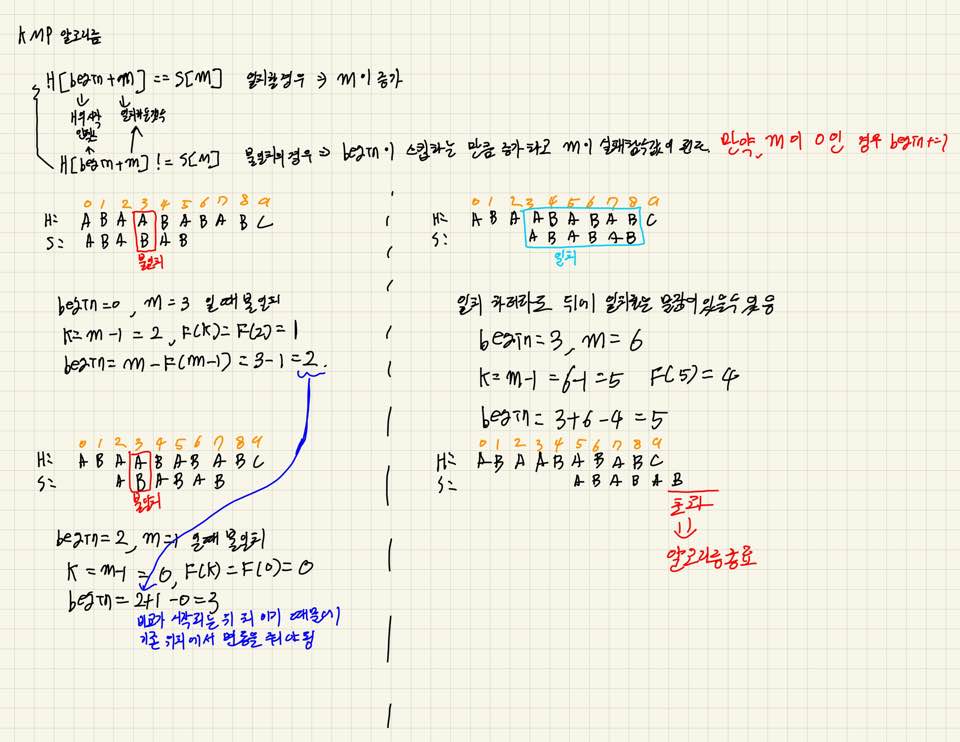 KMP 알고리즘
H[begin+m] == S[m] 일치할경우 ⇒ m이 증가
H의 시작 인덱스
일치하는 갯수
H[begin+m] != S[m] 불일치의 경우 ⇒ begin이 스킵하는 만큼 증가하고 m이 실패함수값이 된다. 만약, m이 0인 경우 begin+=1
0 1 2 3 4 5 6 7 8 9
H: A B A A B A B A B C
S: A B A B A B
불일치
begin=0, m=3 일때 불일치
K=m-1=2, F(K)=F(2)=1
begin=m-F(m-1)=3-1=2.
0 1 2 3 4 5 6 7 8 9
H: A B A A B A B A B C
S: A B A B A B
불일치
begin=2, m=1 일때 불일치
K=m-1=0, F(K)=F(0)=0
begin=2+1-0=3
비교가 시작되는 위치 이기 때문에
기존 위치에서 변동을 줘야 됨
0 1 2 3 4 5 6 7 8 9
H: A B A A B A B A B C
S: A B A B A B
일치
일치 하더라도 뒤에 일치하는 문장이 있을수 있음
begin=3, m=6
K=m-1=6-1=5 F(5)=4
begin=3+6-4=5
0 1 2 3 4 5 6 7 8 9
H: A B A A B A B A B C
S: A B A B A B
초과
알고리즘종료